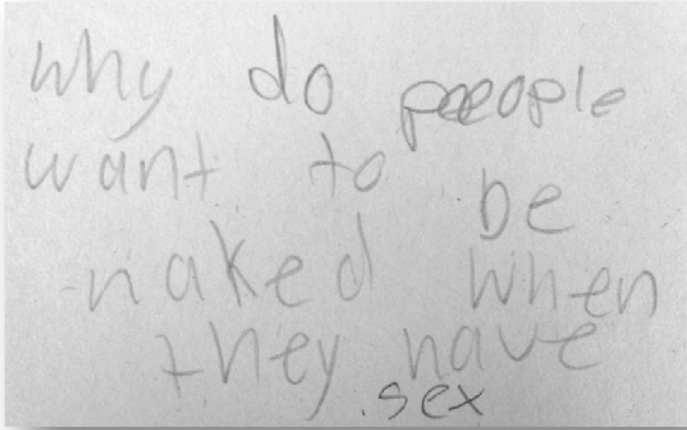 why do peeople
want to be
naked when
they have
.sex